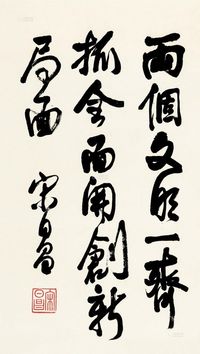 兩個文明一齊
抓全面開創新
局面
宋昌
宋昌